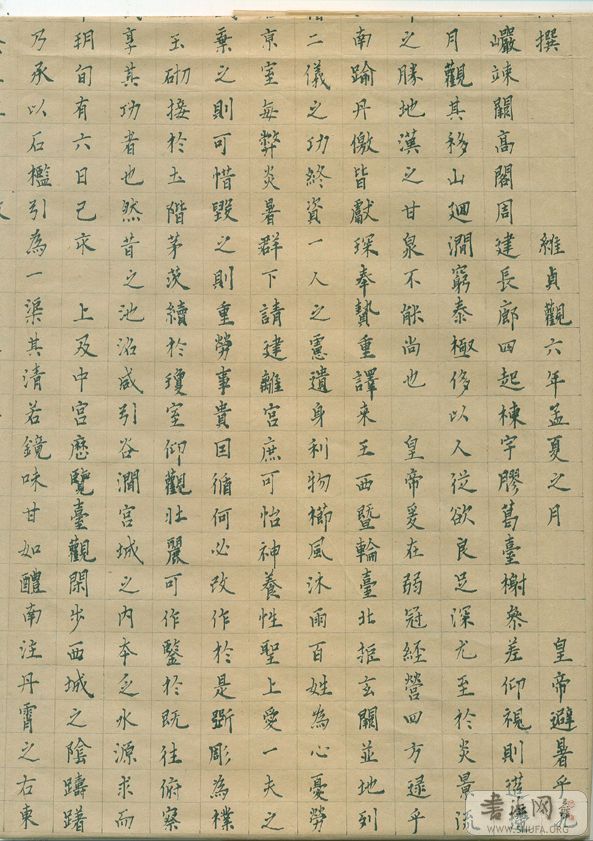 撰 維貞觀六年孟夏之月 皇帝避暑乎九
巖竦闕高閣周建長廊四起棟宇膠葛臺榭叅差仰視則迢
月觀其移山迴澗窮泰極侈以人從欲良足深尤至於炎景流
之勝地漢之甘泉不能尚也 皇帝爰在弱冠經營四方逯乎
南踰丹徼皆獻琛奉贄重譯來王西暨輪臺北拒玄闕並地列
二儀之功終資一人之慮遺身利物櫛風沐雨百姓為心憂勞
京室每弊炎暑群下請建離宮庶可怡神養性聖上愛一夫之
棄之則可惜毀之則重勞事貴因循何必改作於是斲彫為樸
玉砌接於土階茅茨續於瓊室仰觀壯麗可作鑒於既往俯察
享其功者也然昔之池沼咸引谷澗宮城之內本乏水源求而
朔旬有六日己亥 上及中宮歷覽臺觀閑步西城之陰躊躇
乃承以石檻引為一渠其清若鏡味甘如醴南注丹霄之右東
书法网
WWW.SHUFA.ORG